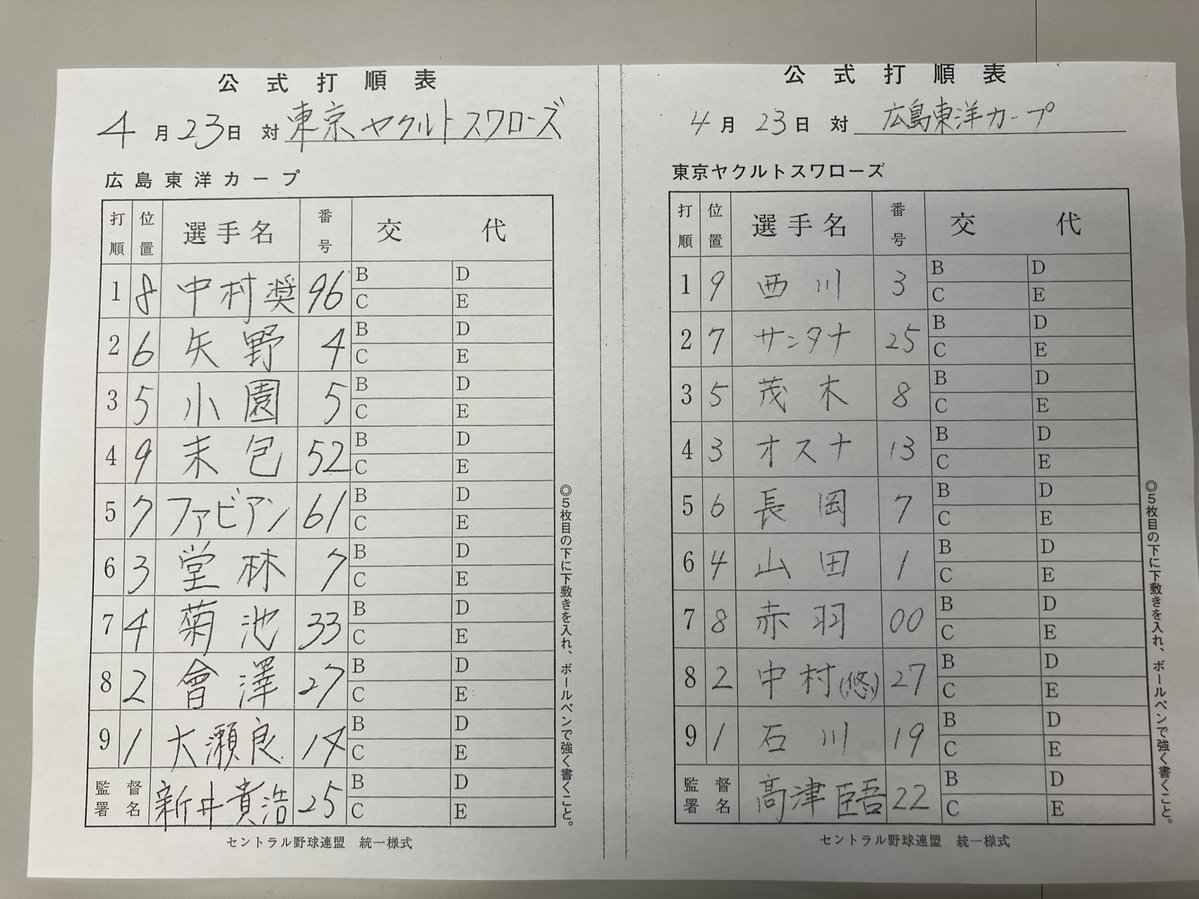 公式打順表
4月23日 対 東京ヤクルトスワローズ
広島東洋カープ
打順 位置 選手名 番号 交代
1 8 中村奨 96 B D
C E
2 6 矢野 4 B D
C E
3 5 小園 5 B D
C E
4 9 末包 52 B D
C E
5 7 ファビアン 61 B D
C E
6 3 堂林 7 B D
C E
7 4 菊池 33 B D
C E
8 2 會澤 27 B D
C E
9 1 大瀬良 14 B D
C E
監督署名 新井貴浩 25 B D
C E
◎5枚目の下に下敷きを入れ、ボールペンで強く書くこと。
セントラル野球連盟 統一様式
公式打順表
4月23日 対 広島東洋カープ
東京ヤクルトスワローズ
打順 位置 選手名 番号 交代
1 9 西川 3 B D
C E
2 7 サンタナ 25 B D
C E
3 5 茂木 8 B D
C E
4 3 オスナ 13 B D
C E
5 6 長岡 7 B D
C E
6 4 山田 1 B D
C E
7 8 赤羽 00 B D
C E
8 2 中村(悠) 27 B D
C E
9 1 石川 19 B D
C E
監督署名 高津臣吾 22 B D
C E
◎5枚目の下に下敷きを入れ、ボールペンで強く書くこと。
セントラル野球連盟 統一様式